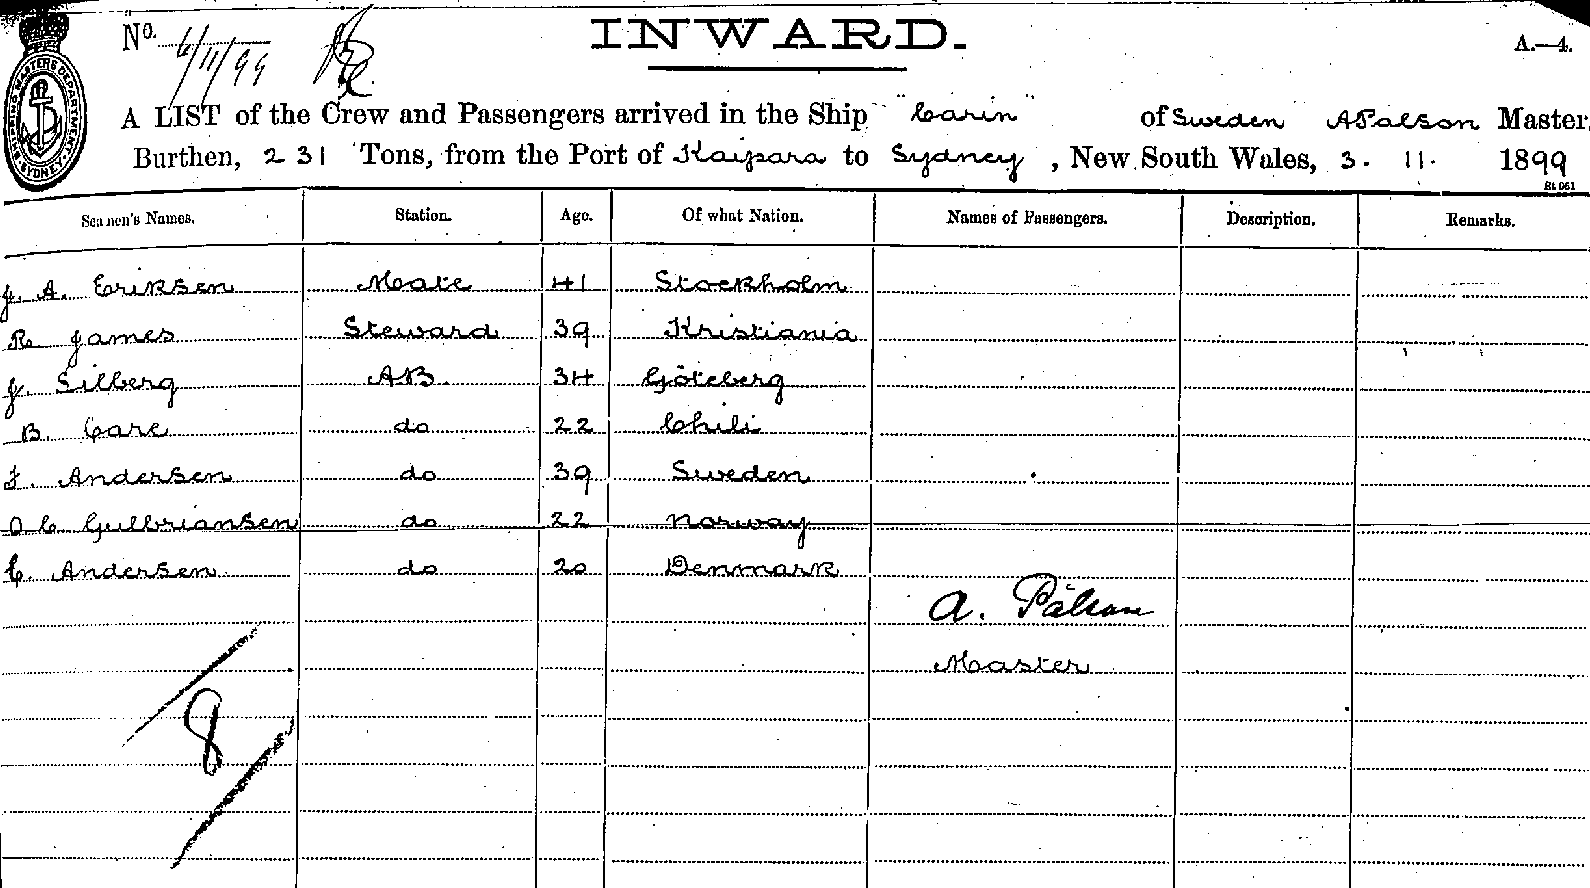 INWARD.
No. 6/11/99
A.—4.
A LIST of the Crew and Passengers arrived in the Ship "Carin" of Sweden A Palson Master,
Burthen, 231 Tons, from the Port of Kaipara to Sydney, New South Wales, 3. 11. 1899
SHIPPING MASTERS DEPARTMENT SYDNEY
Seamen's Names. Station. Age. Of what Nation. Names of Passengers. Description. Remarks.
J. A. Eriksen Mate 41 Stockholm
R James Steward 39 Kristiania
J. Silberg AB. 34 Göteberg
B. Care do 22 Chili
F. Andersen do 39 Sweden
O C Gulbriansen do 22 Norway
C. Andersen do 20 Denmark
A. Pålson
Master
8